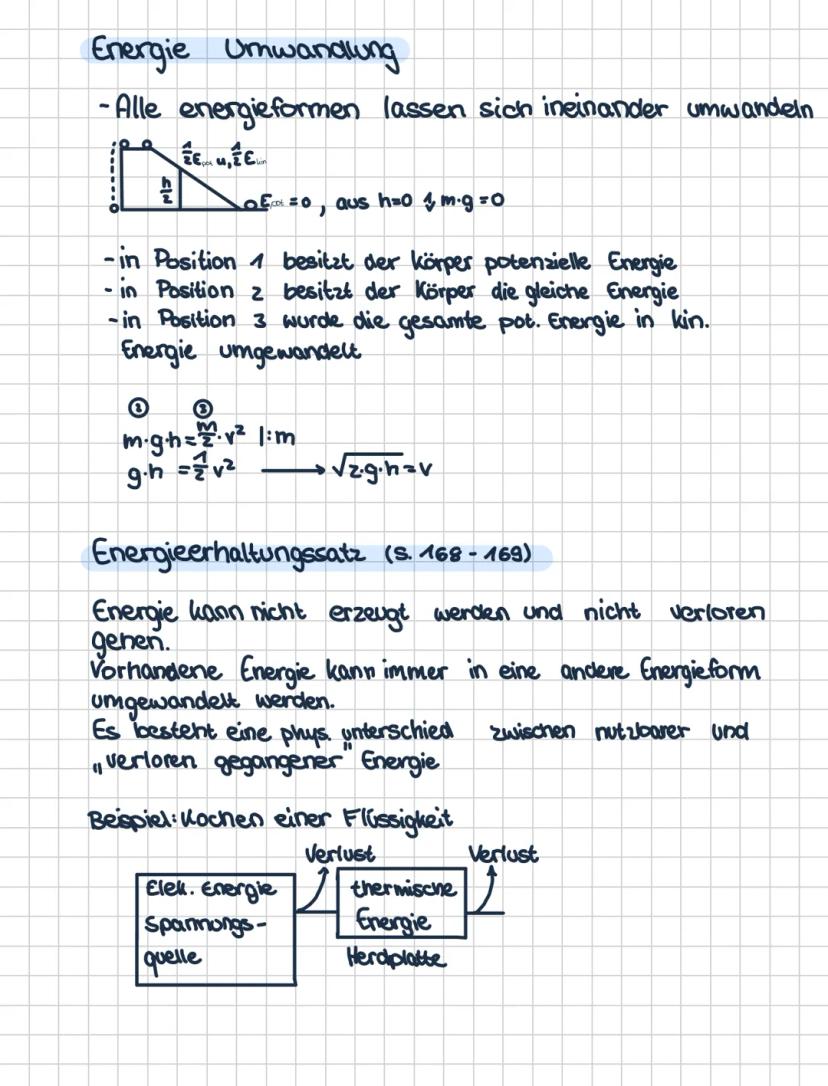 Energie Umwandlung
- Alle energieformen lassen sich ineinander umwandeln
1/2 E pot u, 1/2 E kin
h/2
E pot = 0, aus h=0 m·g=0
- in Position 1 besitzt der körper potenzielle Energie
- in Position 2 besitzt der Körper die gleiche Energie
- in Position 3 wurde die gesamte pot. Energie in kin.
Energie umgewandelt
m·g·h = m/2 · v² |:m
g·h = 1/2 v² → √2·g·h = v
Energieerhaltungssatz (S. 168 - 169)
Energie kann nicht erzeugt werden und nicht verloren
gehen.
Vorhandene Energie kann immer in eine andere Energieform
umgewandelt werden.
Es besteht eine phys. unterschied zwischen nutzbarer und
„verloren gegangener" Energie
Beispiel: Kochen einer Flüssigkeit
Verlust Verlust
Elek. Energie
Spannungs-
quelle
thermische
Energie
Herdplatte